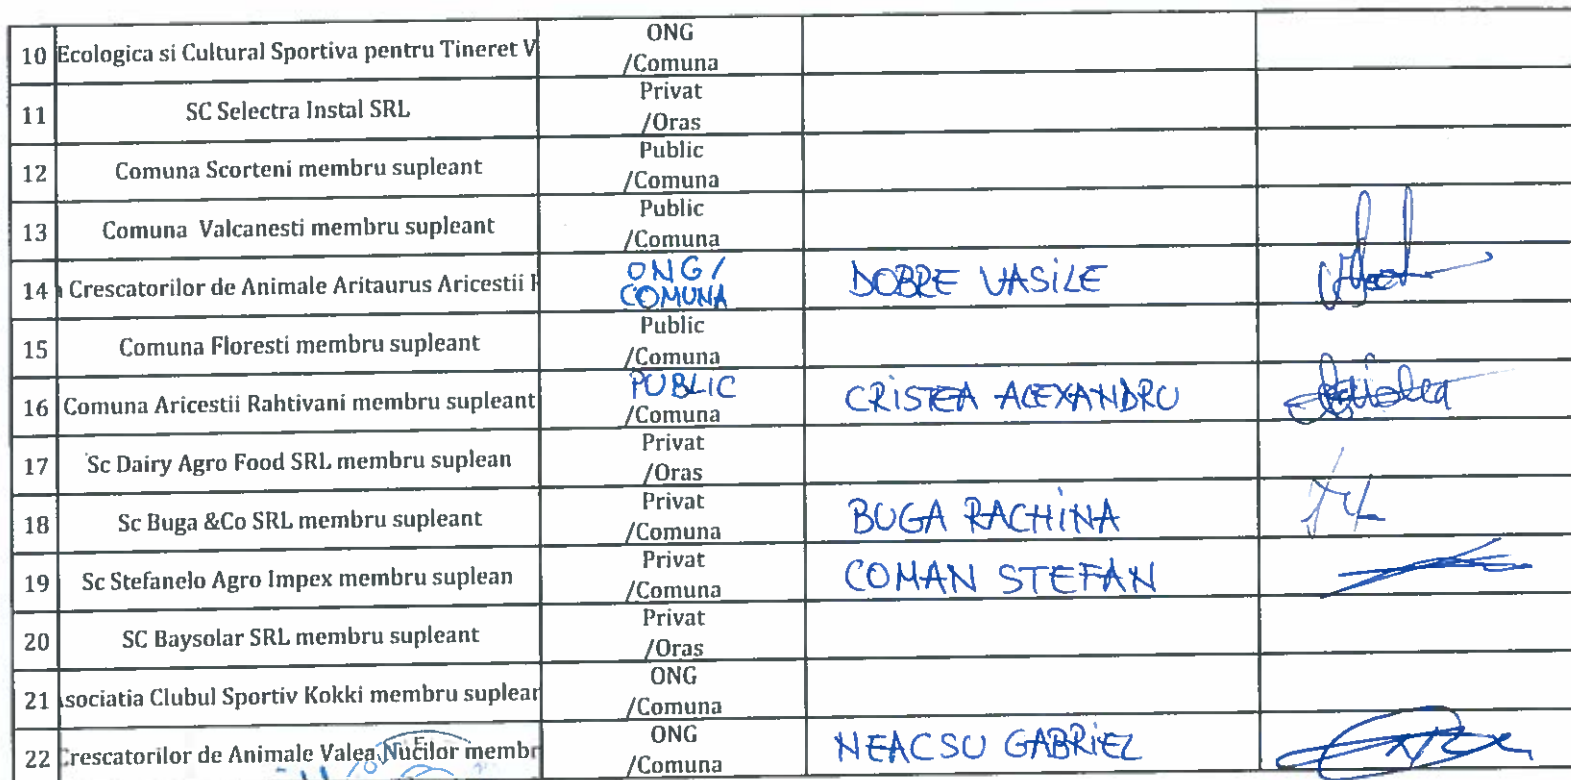 10 Ecologica si Cultural Sportiva pentru Tineret V ONG
/Comuna
11 SC Selectra Instal SRL Privat
/Oras
12 Comuna Scorteni membru supleant Public
/Comuna
13 Comuna Valcanesti membru supleant Public
/Comuna
14 Crescatorilor de Animale Aritaurus Aricestii ONG/ DOBRE VASILE
COMUNA
15 Comuna Floresti membru supleant Public
/Comuna
16 Comuna Aricestii Rahtivani membru supleant PUBLIC CRISTEA ALEXANDRU
/Comuna
17 Sc Dairy Agro Food SRL membru suplean Privat
/Oras
18 Sc Buga &Co SRL membru supleant Privat BUGA RACHINA
/Comuna
19 Sc Stefanelo Agro Impex membru suplean Privat COMAN STEFAN
/Comuna
20 SC Baysolar SRL membru supleant Privat
/Oras
21 sociatia Clubul Sportiv Kokki membru suplear ONG
/Comuna
22 rescatorilor de Animale Valea Nucilor membr ONG NEACSU GABRIEL
/Comuna